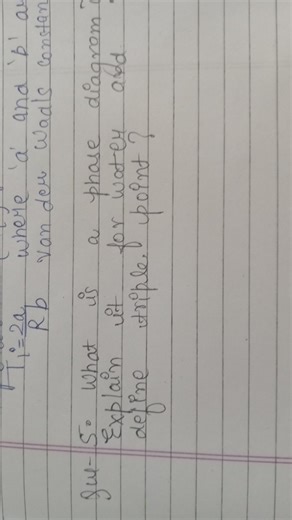 Ti = 2a/Rb where 'a' and 'b' are
van der Waals constan
Que- 5. What is a phase diagram?
Explain it for water and
define triple point?